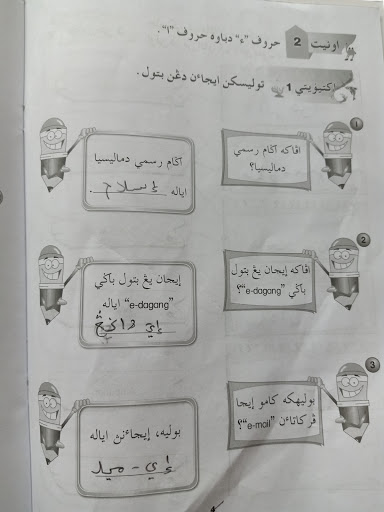 اونيت 2 حروف "ء" دباوه حروف "ا".
اکتيۏيتي 1 توليسکن ايجاءن دڠن بتول.
1
اڤاکه اݢام رسمي
دمليسيا؟
اݢام رسمي دمليسيا
اياله إسلام.
2
اڤاکه إيجان يڠ بتول
باݢي "e-dagang"؟
إيجان يڠ بتول باݢي
"e-dagang" اياله
إي داݢڠ
3
بوليهکه کامو إيجا
ڤرکاتاءن "e-mail"؟
بوليه، إيجاءنڽ اياله
إي - ميل